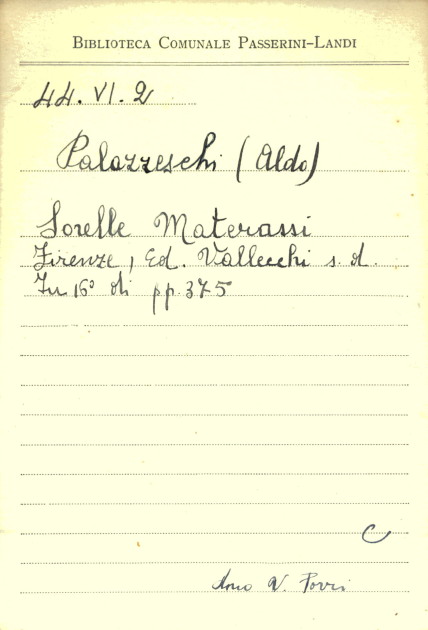 BIBLIOTECA COMUNALE PASSERINI-LANDI
44. VI. 2
Palazzeschi (Aldo)
Sorelle Materassi
Firenze, Ed. Vallecchi s. d.
In 16° di pp. 375
C